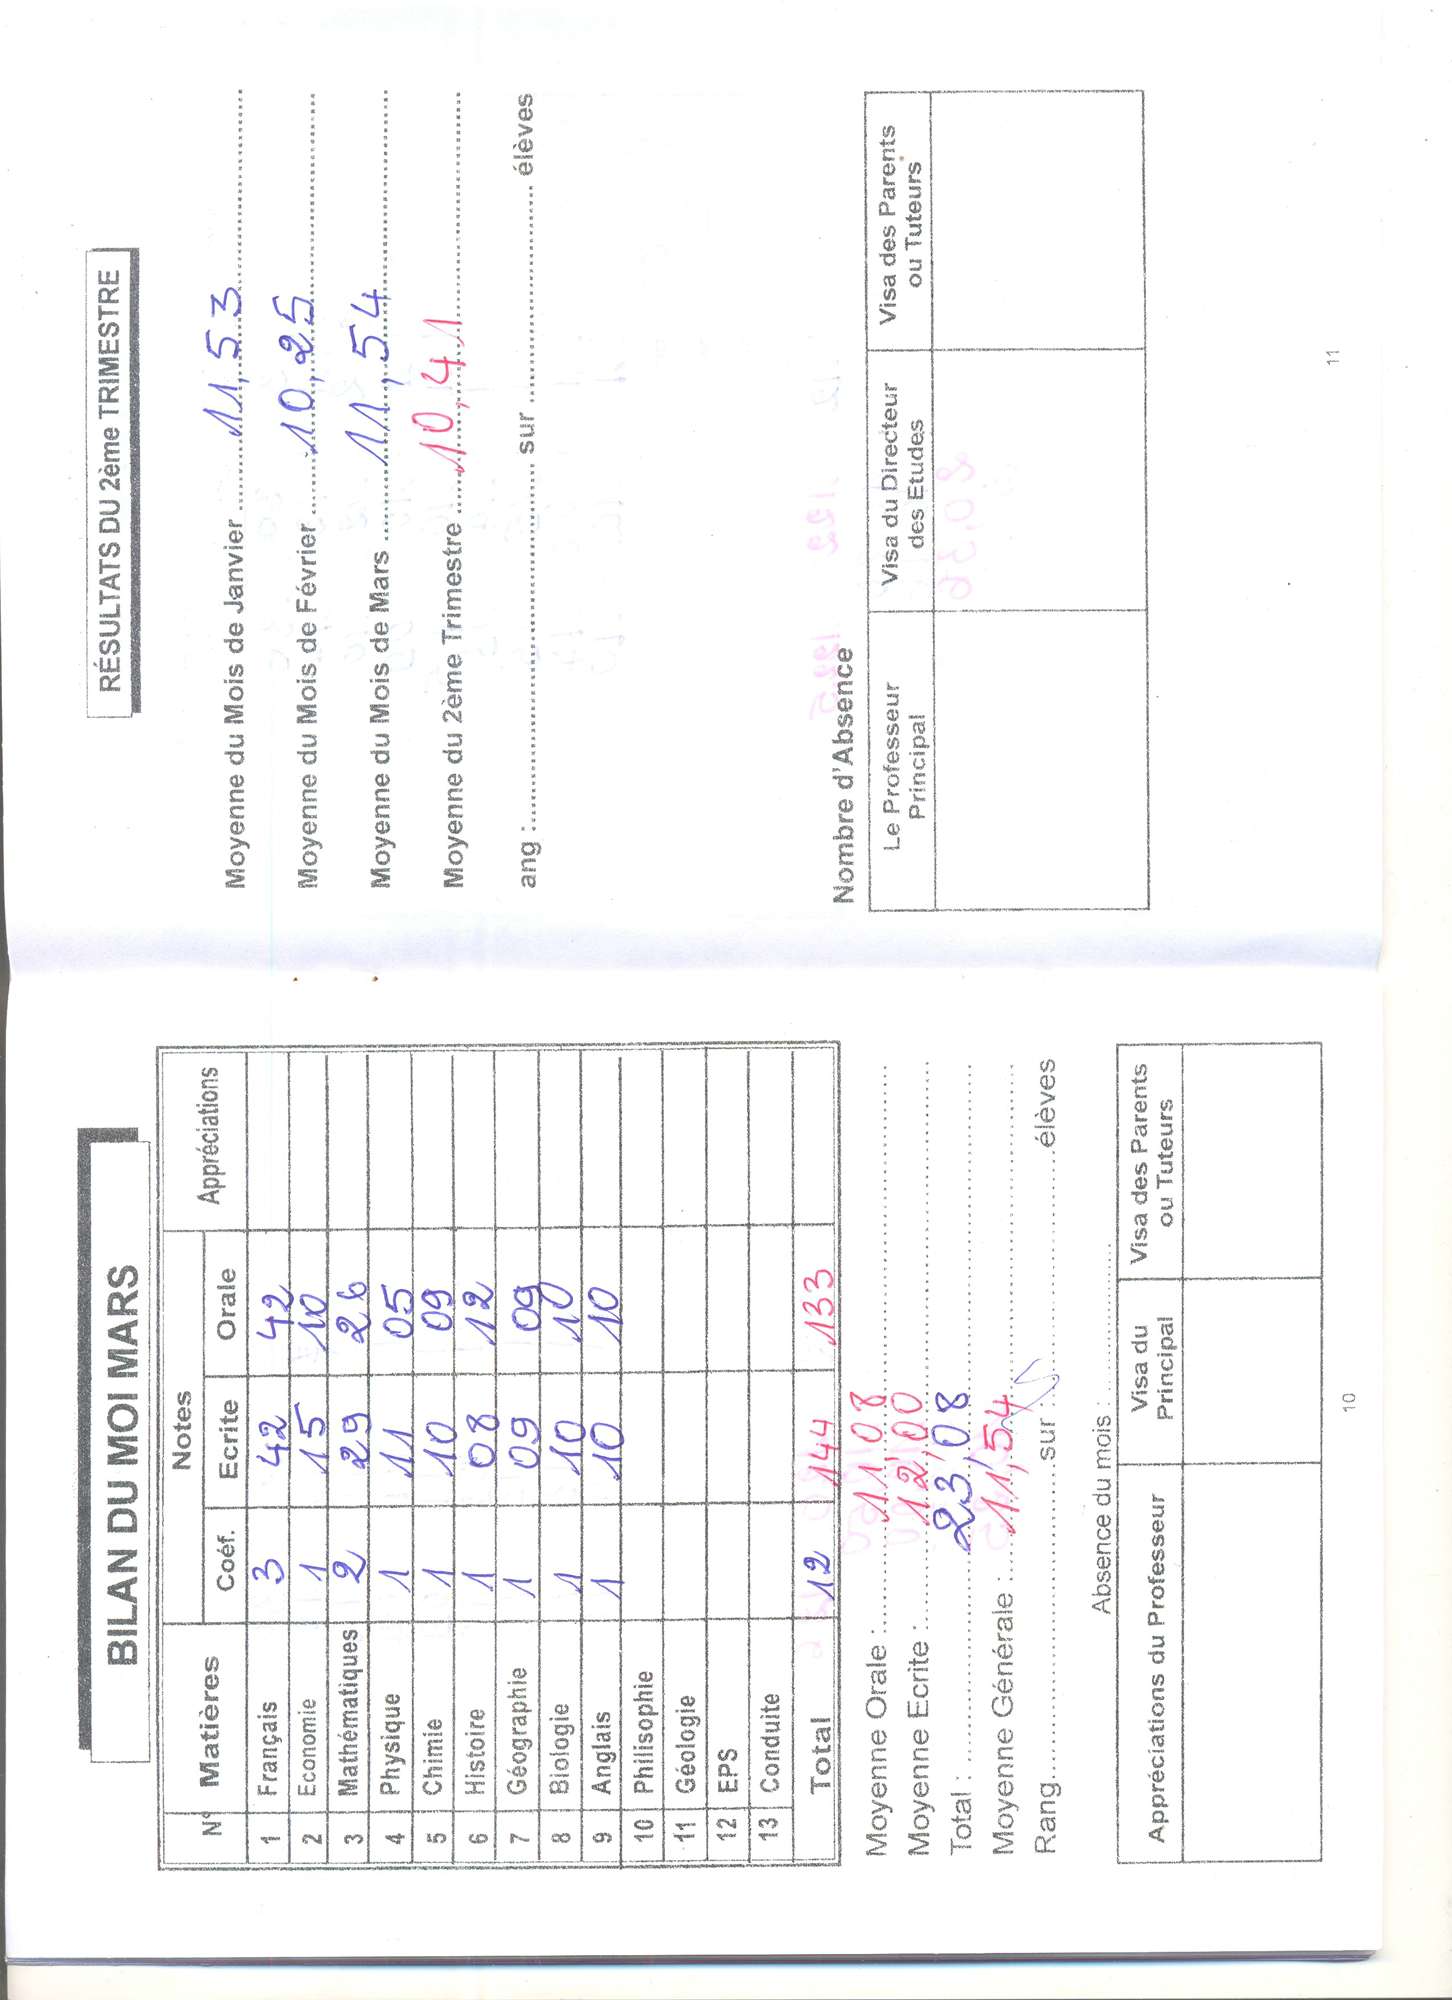 BILAN DU MOI MARS
N° Matières Notes Appréciations
Coéf. Ecrite Orale
1 Français 3 42 42
2 Economie 1 15 10
3 Mathématiques 2 29 26
4 Physique 1 11 05
5 Chimie 1 10 09
6 Histoire 1 08 12
7 Géographie 1 09 09
8 Biologie 1 10 10
9 Anglais 1 10 10
10 Philisophie
11 Géologie
12 EPS
13 Conduite
Total 12 144 133
Moyenne Orale : 11,08
Moyenne Ecrite : 12,00
Total : 23,08
Moyenne Générale : 11,54
Rang sur élèves
Absence du mois :
Appréciations du Professeur Visa du Principal Visa des Parents ou Tuteurs
10
RÉSULTATS DU 2ème TRIMESTRE
Moyenne du Mois de Janvier 11,53
Moyenne du Mois de Février 10,25
Moyenne du Mois de Mars 11,54
Moyenne du 2ème Trimestre 10,41
ang : sur élèves
Nombre d'Absence
Le Professeur Principal Visa du Directeur des Etudes Visa des Parents ou Tuteurs
11